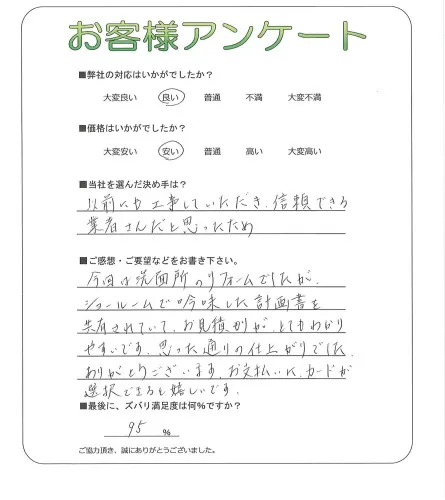 お客様アンケート
■弊社の対応はいかがでしたか?
大変良い 良い 普通 不満 大変不満
■価格はいかがでしたか?
大変安い 安い 普通 高い 大変高い
■当社を選んだ決め手は?
以前にも工事していただき、信頼できる
業者さんだと思ったため
■ご感想・ご要望などをお書き下さい。
今回は洗面所のリフォームでしたが、
ショールームで吟味した計画書を
共有されていて、お見積がりが、とてもわかり
やすいです。思った通りの仕上がりでした。
ありがとうございます。お支払いに、カードが
選択できると嬉しいです。
■最後に、ズバリ満足度は何%ですか?
95 %
ご協力頂き、誠にありがとうございました。